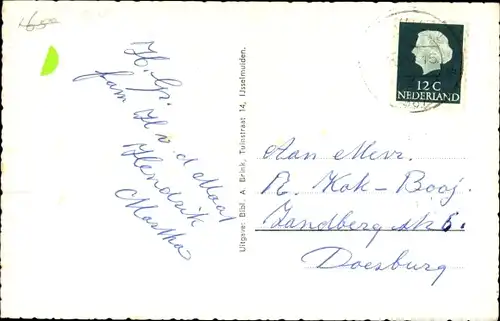 H. Gr.
fam H v d Maat
Hendrik
Martha
Uitgave: Bibl. A. Brink, Tuinstraat 14, IJsselmuiden.
12 C
NEDERLAND
Aan Mevr.
R. Kok-Booj.
Zandbergstr 6.
Doesburg